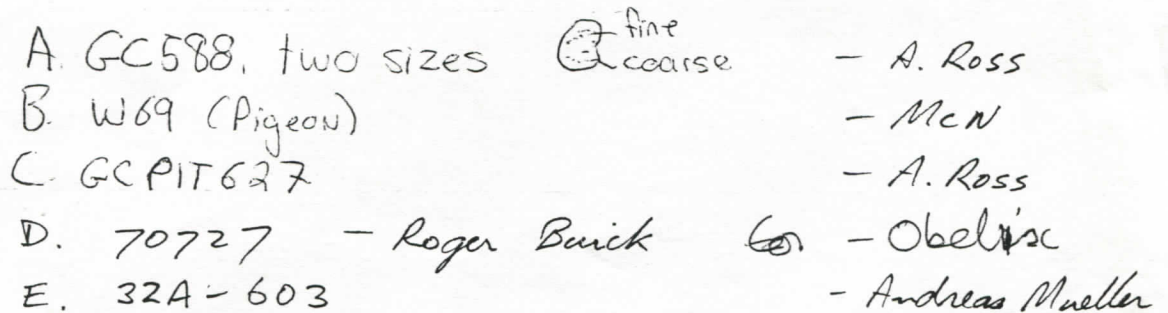 A. GC588, two sizes fine coarse - A. Ross
B. W69 (Pigeon) - McN
C. GCPIT627 - A. Ross
D. 70727 - Roger Buick - Obelisc
E. 32A-603 - Andreas Mueller